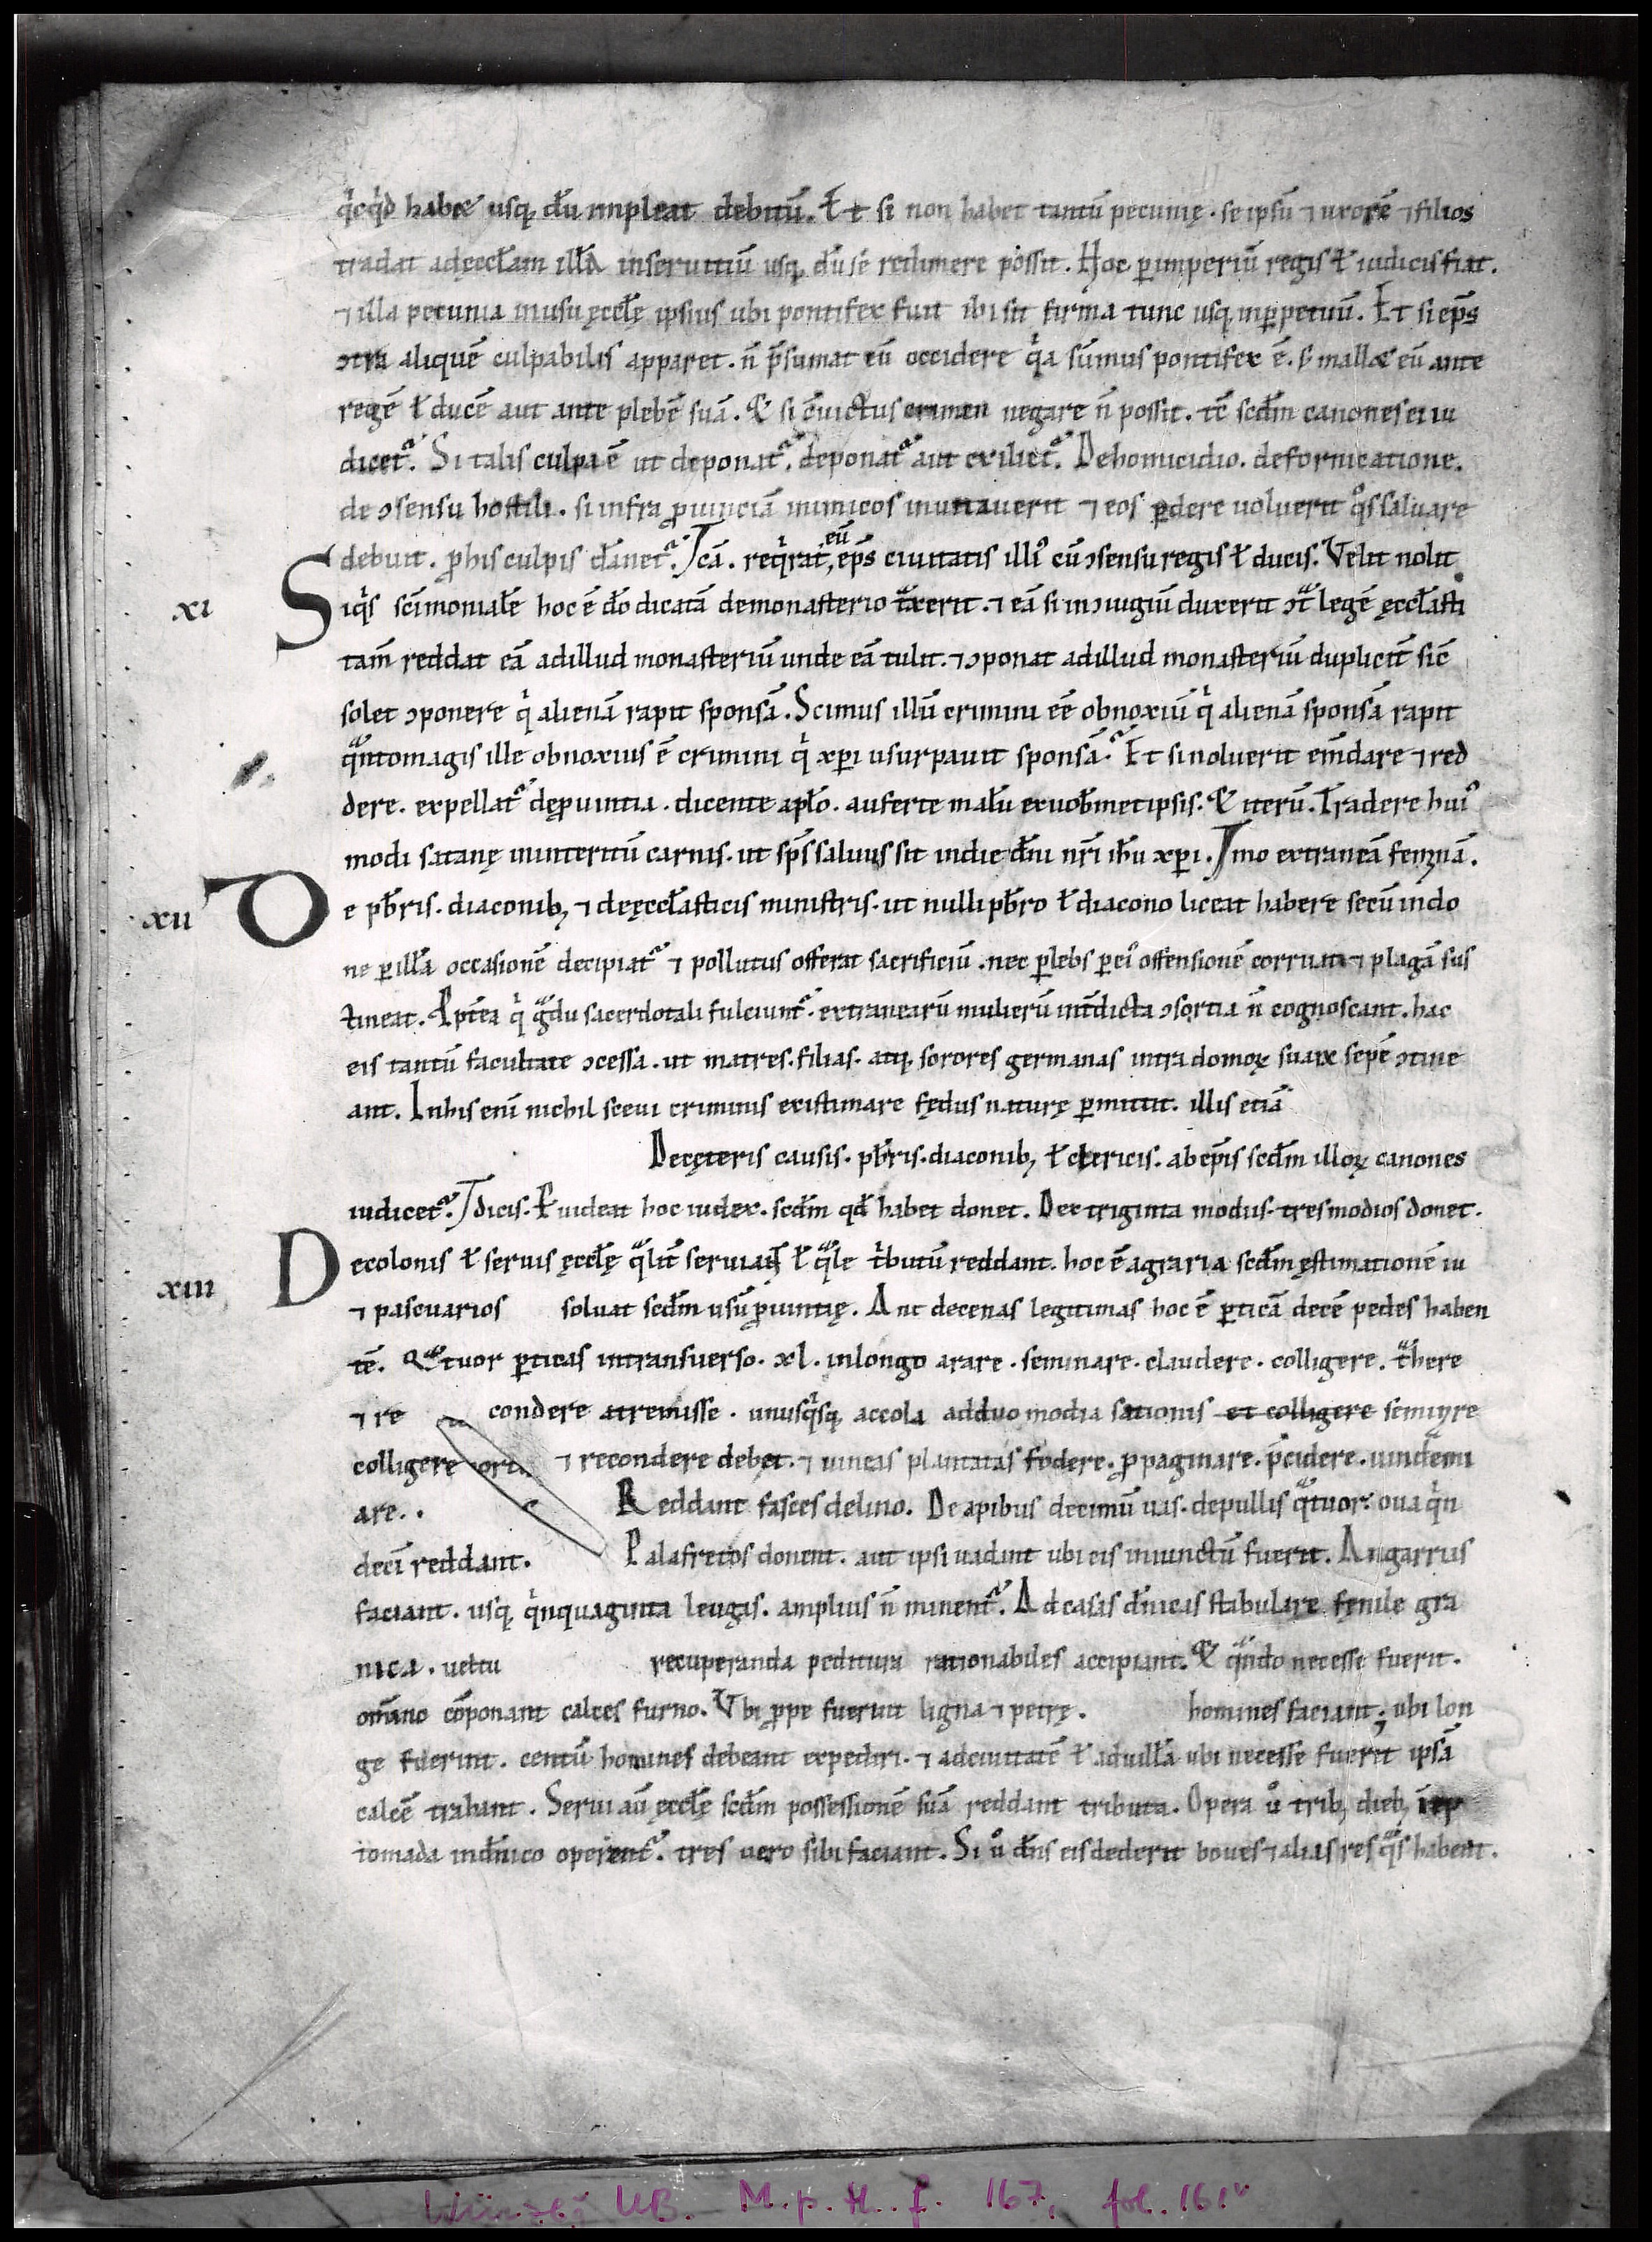 q̍cq̍d habæ usq; dū impleat debitū. Et si non habet tantū pecunię. se ipsū ⁊ uxorē ⁊ filios
tradat adęccłam illā inseruitiū usq; dū se redimere possit. Hoc ꝑimperiū regis ł iudicis fiat.
⁊ illa pecunia inusu ęccłę ipsius ubi pontifex fuit ibi sit firma tunc usq; inꝑpetuū. Et si ep̄s
ↄtra aliquē culpabilis apparet. n̄ p̄sumat eū occidere q̍a sūmus pontifex ē. s; mallæ eū ante
regē ł ducē aut ante plebē suā. & si c̄uictus crimen negare n̄ possit. tc̄ scdm̄ canones ei iu
dicet᷑. Si talis culpa ē ut deponat᷑. deponat᷑ aut exiliet᷑. De homicidio. de fornicatione.
de ↄsensu hostili. si infra ꝓuinciā inimicos inuitauerit ⁊ eos ꝑdere uoluerit q°s saluare
debuit. ꝓ his culpis dānet᷑.
eū
Velit nolit
req̍rat, ep̄s ciuitatis illi᷒ cū ↄsensu regis ł ducis.
xi Siq̍s scīmonialē hoc ē dō dicatā de monasterio tᷓxerit. ⁊ eā si inↄiugiū duxerit ↄtᷓ legē ęccłasti
tam̄ reddat eā adillud monasteriū unde eā tulit. ⁊ ↄponat adillud monasteriū duplicit̄ sic̄
solet ↄponere q̍ alienā rapit sponsā. Scimus illū crimini ēē obnoxiū q̍ alienā sponsā rapit
qᷓntomagis ille obnoxius ē crimini q̍ xp̄i usurpauit sponsā. Et si noluerit em̄dare ⁊ red
dere. expellat᷑ dęꝓuintia. dicente apło. auferte malū exuob̄metipsis. & iterū. Tradere hui᷒
modi satanę ininteritū carnis. ut sp̄s saluus sit indie dn̄i nr̄i ih̄u xp̄i. Imo extraneā feminā.
xii De pb̄ris. diaconib; ⁊ deęccłasticis ministris. ut nulli pb̄ro ł diacono liceat habere secū indo
ne ꝑ illā occasionē decipiat᷑ ⁊ pollutus offerat sacrificiū. nec ꝑ plebs ꝑ ei᷒ offensionē corruat ⁊ plagā sus
tineat. Pp̄t̄ea q̍ gᷓdu sacerdotali fulciunt᷑. extranearū mulierū int̄dicta ↄsortia n̄ cognoscant. hac
eis tantū facultate ↄcessa. ut matres. filias. atq; sorores germanas intra domoꝝ suaꝝ sepē ↄtine
ant. Inhis enī nichil sceui criminis existimare fędus naturę ꝑmittit. illis etiā
Decęteris causis. pb̄ris. diaconib; ł clericis. ab ep̄is scdm̄ illoꝝ canones
iudicet᷑. Et uideat hoc iudex. scdm̄ qđ habet donet. De triginta modiis tres modios donet.
xiii Decolonis ł seruis ęccłę qᷓlit̄ seruiant ł qᷓle t̍butū reddant. hoc ē agraria scdm̄ ęstimationē iu
⁊ pascuarios soluat scdm̄ usū ꝓuintię. Ant decenas legitimas hoc ē ꝑticā decē pedes haben
tē. Qᷓtuor ꝑticas intransuerso. xl. inlongo arare. seminare. claudere. colligere. tᷓhere
⁊ re condere atremisse. unusq̍sq; accola adduo modia sationis et colligere seminare
colligere ⁊ recondere debet. ⁊ uineas plantatas fodere. ꝓpaginare. p̄cidere. uindemi
are.. Reddant fasces delino. De apibus decimū uas. depullis qᷓtuor. oua q̍n
decī reddant. Palafretos donent. aut ipsi uadant ubi eis iniunctū fuerit. Angarrus
faciant. usq; q̍nquaginta leugis. amplius n̄ minent᷑. Adcasis dn̄icis stabulare fęnile gra
nica. uel tu recuperanda peditura rationabiles accipiant. & qᷓndo necesse fuerit.
om̄ino cōponant calces furno. Vbi ꝓpe fuerint ligna ⁊ petrę. homines faciant; ubi lon
ge fuerint. centū homines debeant expediri. ⁊ adciuitatē ł aduillā ubi necesse fuerit ipsā
calcē trahant. Serui aū ęccłę scdm̄ possessionē suā reddant tributa. Opera ů trib; dieb; iep
tomada indn̄ico operent᷑. tres uero sibi faciant. Si ů dn̄s eis dederit boues ⁊ alias res qᷓs habent.
UB. M. p. th. f. 167, fol. 161v